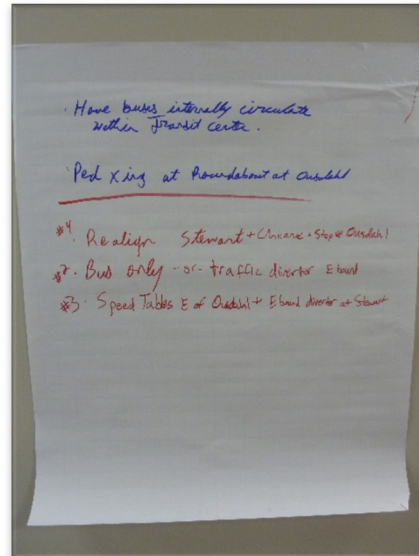 · Have buses internally circulate
within Transit center.
· Ped Xing at Roundabout at Ousdahl
Realign Stewart + + Stop @ Ousdahl
#2 · Bus only -or- traffic divertor E bound
#3 · Speed Tables E of Ousdahl + E bound divertor at Stewart